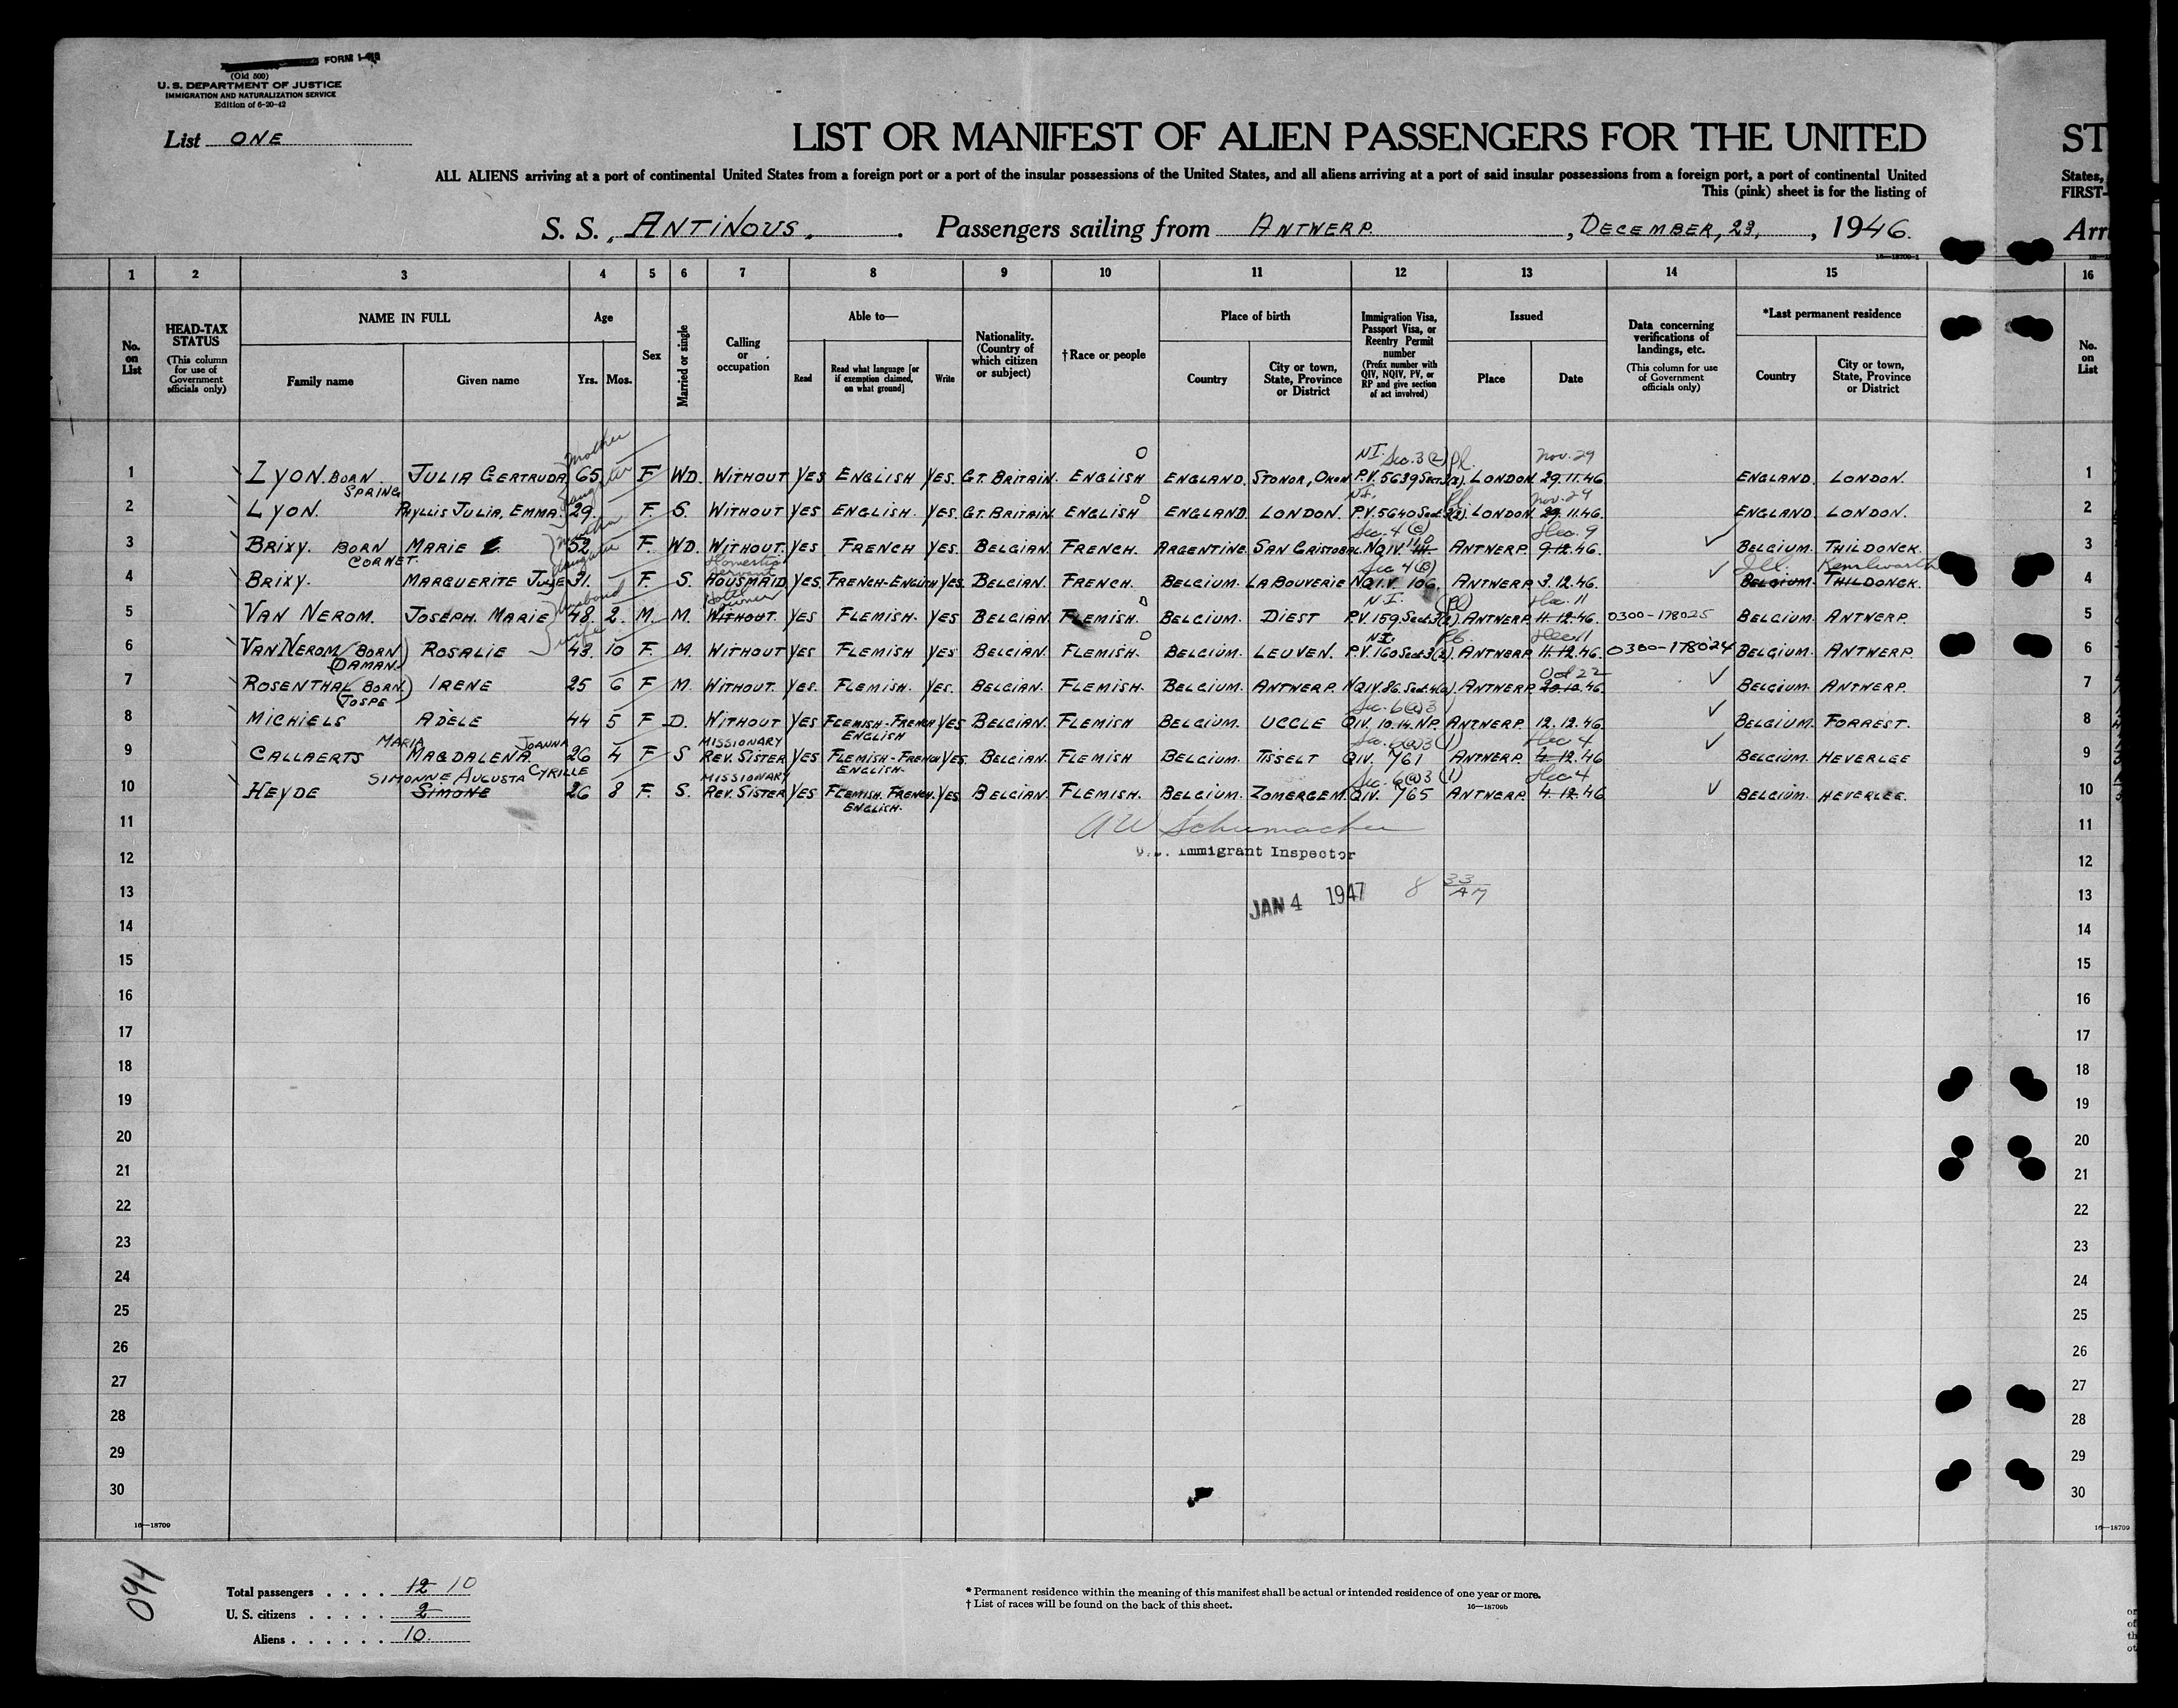 FORM I-418
(Old 500)
U. S. DEPARTMENT OF JUSTICE
IMMIGRATION AND NATURALIZATION SERVICE
Edition of 6-20-42
List ONE
LIST OR MANIFEST OF ALIEN PASSENGERS FOR THE UNITED
ST
ALL ALIENS arriving at a port of continental United States from a foreign port or a port of the insular possessions of the United States, and all aliens arriving at a port of said insular possessions from a foreign port, a port of continental United
States,
This (pink) sheet is for the listing of
FIRST-
S. S. ANTINOUS. Passengers sailing from ANTWERP. , DECEMBER, 23, , 1946.
Arr
16—18709-1
1 2 3 4 5 6 7 8 9 10 11 12 13 14 15 16
No. on List
HEAD-TAX STATUS (This column for use of Government officials only)
NAME IN FULL
Family name Given name
Age
Yrs. Mos.
Sex
Married or single
Calling or occupation
Able to—
Read Read what language [or if exemption claimed, on what ground] Write
Nationality. (Country of which citizen or subject)
†Race or people
Place of birth
Country City or town, State, Province or District
Immigration Visa, Passport Visa, or Reentry Permit number (Prefix number with QIV, NQIV, PV, or RP and give section of act involved)
Issued
Place Date
Data concerning verifications of landings, etc. (This column for use of Government officials only)
*Last permanent residence
Country City or town, State, Province or District
No. on List
Mother N.I. Sec. 3(2) Pl. Nov. 29
1 LYON. BORN SPRING JULIA GERTRUDA 65 F WD. WITHOUT YES ENGLISH YES. GT. BRITAIN. ENGLISH ENGLAND. STONOR, OXON P.V. 5639 SECT 3(2). LONDON 29.11.46 ENGLAND. LONDON. 1
daughter N.I. Pl Nov. 29
2 LYON. PHYLLIS JULIA, EMMA. 29. F. S. WITHOUT YES ENGLISH. YES. GT. BRITAIN ENGLISH ENGLAND. LONDON. P.V. 5640 Sect. 3(2). LONDON 29.11.46. ENGLAND. LONDON. 2
Mother Sec. 4(c) Dec. 9
3 BRIXY. BORN CORNET. MARIE 52 F. WD. WITHOUT. YES FRENCH YES. BELGIAN. FRENCH. ARGENTINE. SAN CRISTOBAL NQIV. 110 ANTWERP. 9.12.46. BELGIUM. THILDONCK. 3
daughter Domestic Servant Sec 4(c) Ill. Kenilworth
4 BRIXY. MARGUERITE JULIE 31. F. S. HOUSMAID YES. FRENCH-ENGLISH YES. BELGIAN. FRENCH. BELGIUM. LA BOUVERIE NQI.V 106. ANTWERP. 3.12.46. BELGIUM. THILDONCK. 4
husband Hotel owner N.I. (Pl) Dec. 11
5 VAN NEROM. JOSEPH. MARIE 48. 2. M. M. WITHOUT. YES FLEMISH. YES. BELGIAN. FLEMISH. BELGIUM. DIEST P.V. 159. Sect. 3(2). ANTWERP. 11.12.46. 0300-178025 BELGIUM. ANTWERP. 5
wife N.I. Pl. Dec 11
6 VAN NEROM (BORN DAMAN.) ROSALIE 43. 10 F. M. WITHOUT YES FLEMISH YES BELGIAN. FLEMISH. BELGIUM. LEUVEN. P.V. 160 Sect. 3(2). ANTWERP. 11.12.46. 0300-178024 BELGIUM. ANTWERP. 6
Oct 22
7 ROSENTHAL (BORN JOSPE) IRENE 25 6 F M. WITHOUT. YES. FLEMISH. YES. BELGIAN. FLEMISH. BELGIUM. ANTWERP. NQIV. 86. Sect. 4(a). ANTWERP. BELGIUM. ANTWERP. 7
Sec. 6(a)3
8 MICHIELS ADÈLE 44 5 F D. WITHOUT YES FLEMISH-FRENCH ENGLISH YES BELGIAN. FLEMISH BELGIUM. UCCLE QIV. 10.14. NP. ANTWERP. 12.12.46. BELGIUM. FORREST. 8
MARIA JOANNA MISSIONARY Sec. 6(a)3 (1) Dec 4
9 CALLAERTS MAGDALENA. 26 4 F S REV. SISTER YES FLEMISH-FRENCH ENGLISH. YES. BELGIAN. FLEMISH BELGIUM. TISSELT QIV. 961 ANTWERP. 4.12.46 BELGIUM. HEVERLEE 9
SIMONNE AUGUSTA CYRILLE MISSIONARY Sec. 6(a)3 (1) Dec 4
10 HEYDE SIMONE 26 8 F. S. REV. SISTER YES FLEMISH. FRENCH. ENGLISH. YES. BELGIAN. FLEMISH. BELGIUM. ZOMERGEM. QIV. 965 ANTWERP. 4.12.46 BELGIUM. HEVERLEE. 10
11 AW Schumacher 11
12 U.S. Immigrant Inspector 12
13 JAN 4 1947 8 33 AM 13
14 14
15 15
16 16
17 17
18 18
19 19
20 20
21 21
22 22
23 23
24 24
25 25
26 26
27 27
28 28
29 29
30 30
16—18709 16—18709
094
Total passengers . . . . 12 10
U. S. citizens . . . . . 2
Aliens . . . . . . 10.
* Permanent residence within the meaning of this manifest shall be actual or intended residence of one year or more.
† List of races will be found on the back of this sheet. 16—18709b